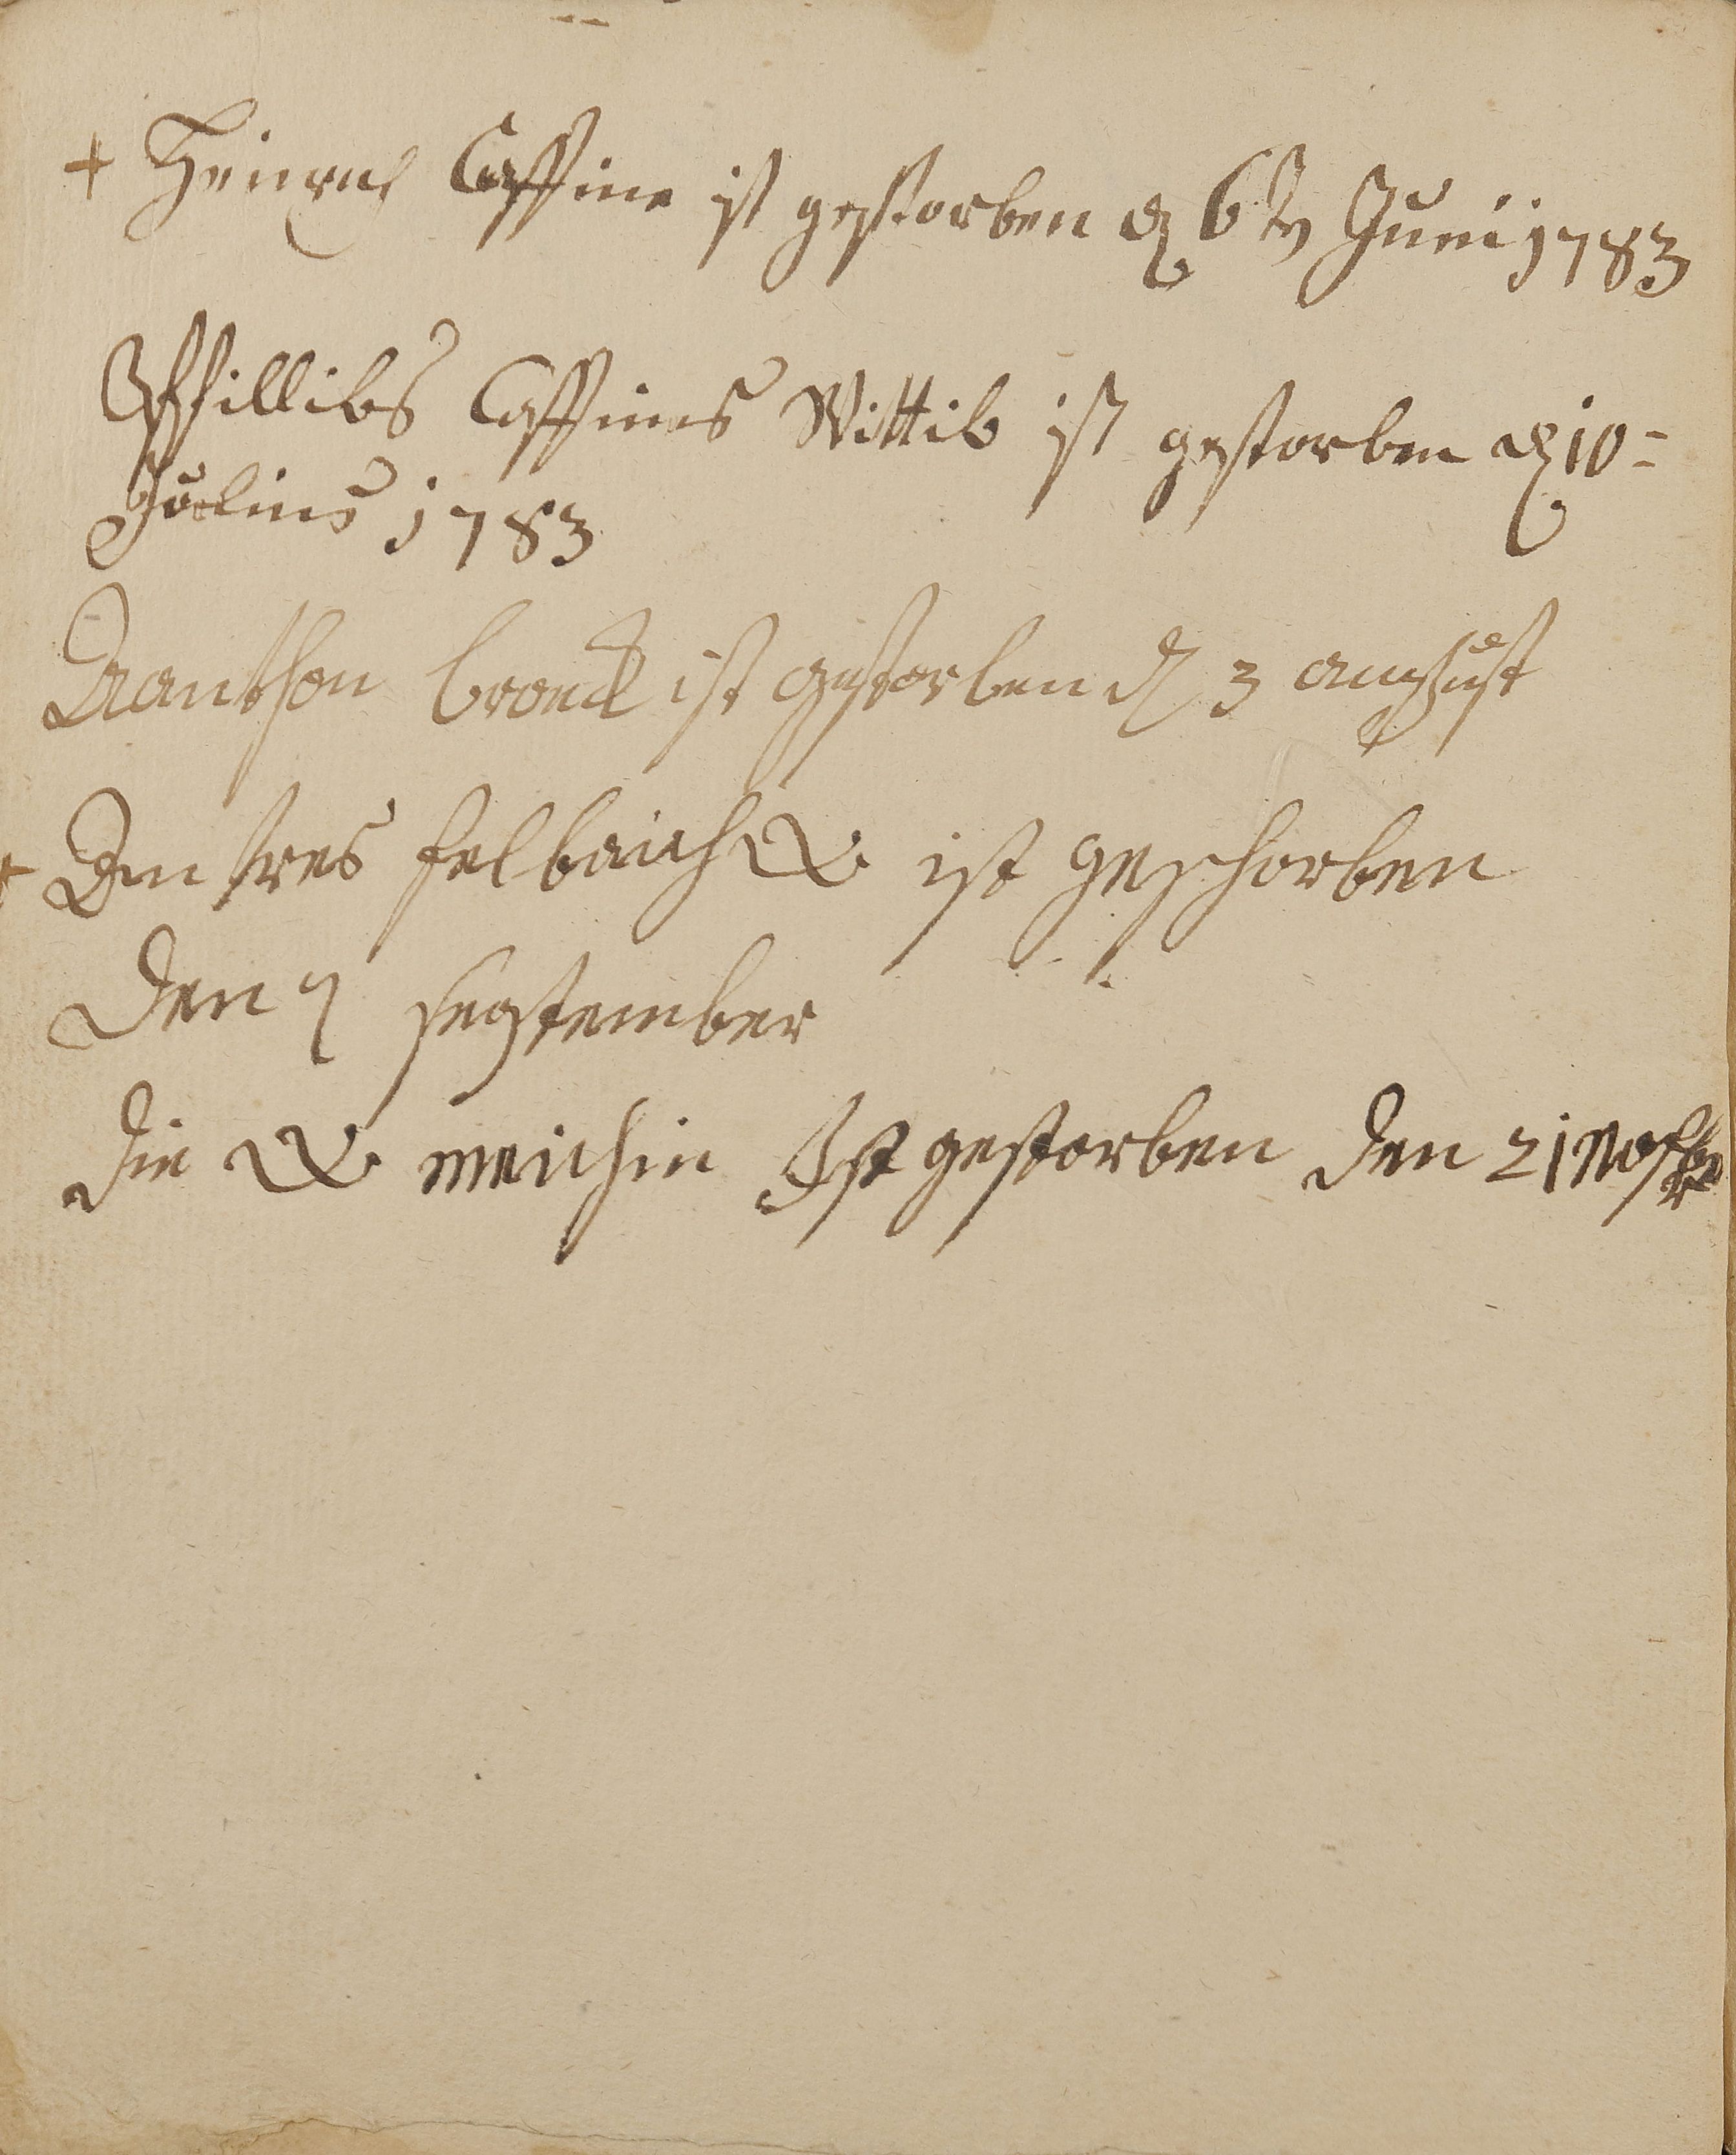 + Heinrich Cassine ist gestorben d 6t Junii 1783
Phillibs Cassines Wittib ist gestorben d 10=
Julius 1783
Aanthon broea ist gestorben d 3 august
+ Antres felbaich ist geschorben
den 7 september
die W meichin Ist gestorben den 21 Nofbr